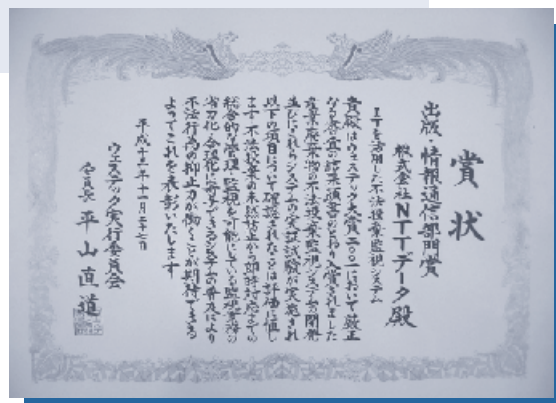 賞状
出版・情報通信部門賞
株式会社NTTデータ殿
ITを活用した不法投棄監視システム
貴殿はウェステック大賞二〇〇一において厳正
なる審査の結果頭書のとおり入賞されました
産業廃棄物の不法投棄監視システムの開発
並びにこれらシステムの実証試験が実施され
以下の項目について確認されたことは評価に値し
ます 不法投棄の未然防止から即時対応までの
総合的な管理・監視を可能にしている監視業務の
省力化・合理化に寄与できるシステムの普及により
不法行為の抑止力が働くことが期待できる
よってこれを表彰いたします
平成十三年十一月二十七日
ウェステック実行委員会
会長 平山直道